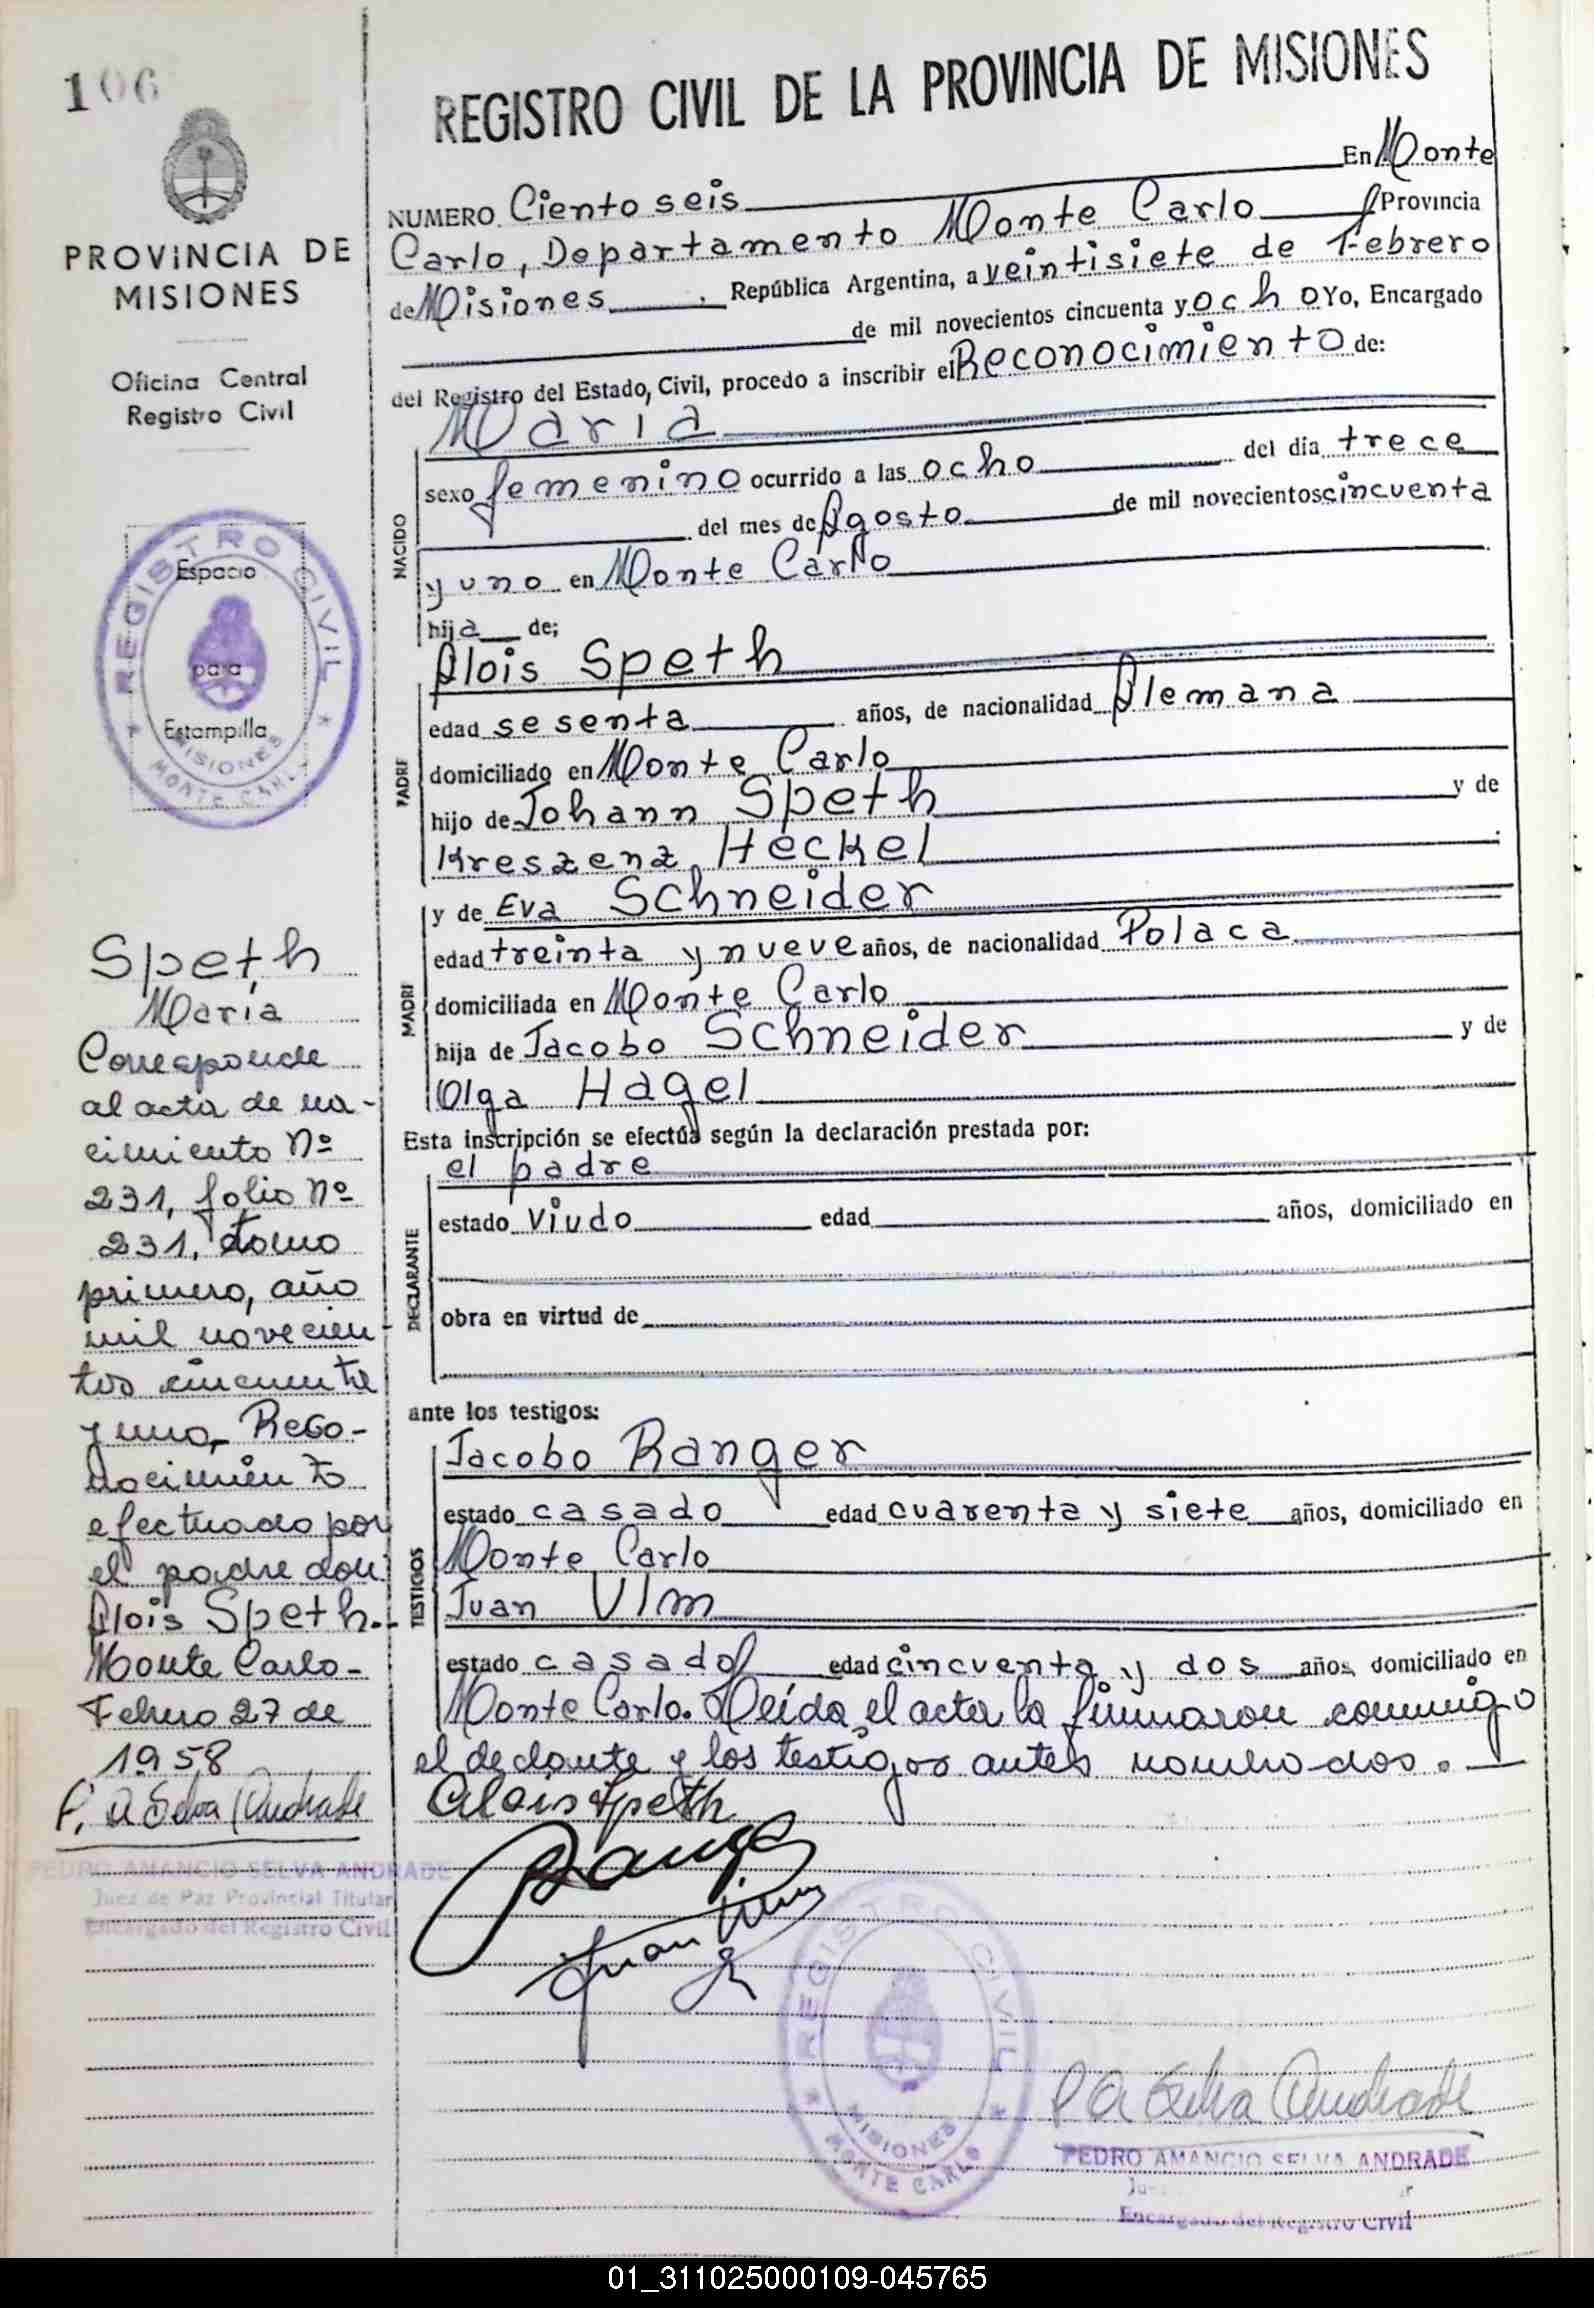 106
PROVINCIA DE
MISIONES
Oficina Central
Registro Civil
REGISTRO CIVIL
Espacio
para
Estampilla
MISIONES
MONTE CARLO
Speth
María
Corresponde
al acta de na-
cimiento Nº
231, folio Nº
231, tomo
primero, año
mil novecien-
tos cincuenta
y uno. Reco-
nocimiento
efectuado por
el padre don
Alois Speth.-
Monte Carlo-
Febrero 27 de
1958
P. A Selva Andrade
PEDRO AMANCIO SELVA ANDRADE
Juez de Paz Provincial Titular
Encargado del Registro Civil
REGISTRO CIVIL DE LA PROVINCIA DE MISIONES
NUMERO Ciento seis En Monte
Carlo, Departamento Monte Carlo Provincia
de Misiones, República Argentina, a veintisiete de Febrero
de mil novecientos cincuenta y ocho Yo, Encargado
del Registro del Estado Civil, procedo a inscribir el Reconocimiento de:
María
NACIDO
sexo femenino ocurrido a las ocho del día trece
del mes de Agosto de mil novecientos cincuenta
y uno en Monte Carlo
hija de;
Alois Speth
PADRE
edad sesenta años, de nacionalidad Alemana
domiciliado en Monte Carlo
hijo de Johann Speth y de
Kreszenz Heckel
y de Eva Schneider
MADRE
edad treinta y nueve años, de nacionalidad Polaca
domiciliada en Monte Carlo
hija de Jacobo Schneider y de
Olga Hagel
Esta inscripción se efectúa según la declaración prestada por:
el padre
DECLARANTE
estado viudo edad años, domiciliado en
obra en virtud de
ante los testigos:
Jacobo Ranger
TESTIGOS
estado casado edad cuarenta y siete años, domiciliado en
Monte Carlo
Juan Ulm
estado casado edad cincuenta y dos años, domiciliado en
Monte Carlo. Leída el acta la firmaron conmigo
el declante y los testigos antes nombrados.
Alois Speth
Ranger
Juan Ulm
REGISTRO CIVIL
MISIONES
MONTE CARLO
P A Selva Andrade
PEDRO AMANCIO SELVA ANDRADE
Encargado del Registro Civil
01_311025000109-045765